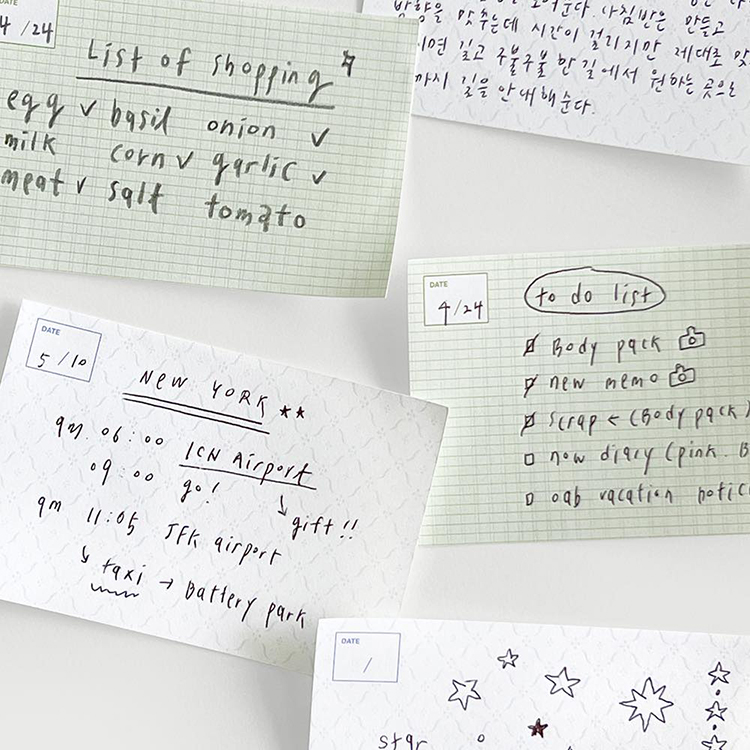 DATE
4/24
List of shopping
egg ✓ basil onion ✓
milk corn ✓ garlic ✓
meat ✓ salt tomato
맞추는데 시간이 걸리지만 제대로
길고 구불구불 한 길에서 원하는 곳으로
까지 길을 안내해준다.
DATE
4/24
to do list
Body pack
new memo
scrap ← (Body pack)
now diary (pink. B
oab vacation notic
DATE
5/10
NEW YORK ★★
am 06:00 ICN Airport
09:00 go! ↳ gift!!
am 11:05 JFK airport
↳ taxi → Battery park
DATE
/
star